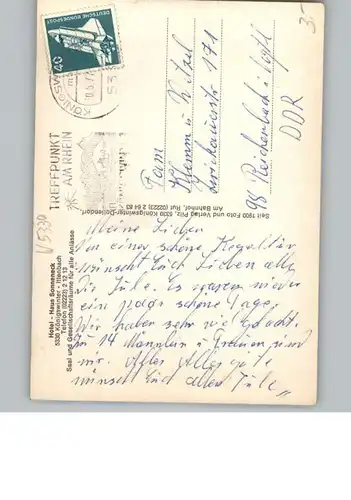 3.-
DEUTSCHE BUNDESPOST
40
KÖNIGSW
53
TREFFPUNKT
AM RHEIN
V 5330
Hotel - Haus Sonneneck
5330 Königswinter - Ittenbach
Telefon (02223) 2 12 13
Saal und Gesellschaftsräume für alle Anlässe
Seit 1900 Foto und Verlag Pilz, 5330 Königswinter-Dollendorf
Am Bahnhof, Ruf: (02223) 2 64 83
Fam
Klemm u
171
98 Reichenbach Vogtl
DDR
Meine Lieben
in einer schöne
wünscht Euch Lieben alle
Die Jule. Es waren wieder
ein paar schöne Tage.
Wir haben sehr viel gelacht.
zu 14 Männlein u Frauen sind
wir. Alles Alles gute
wünscht Euch allen Jule